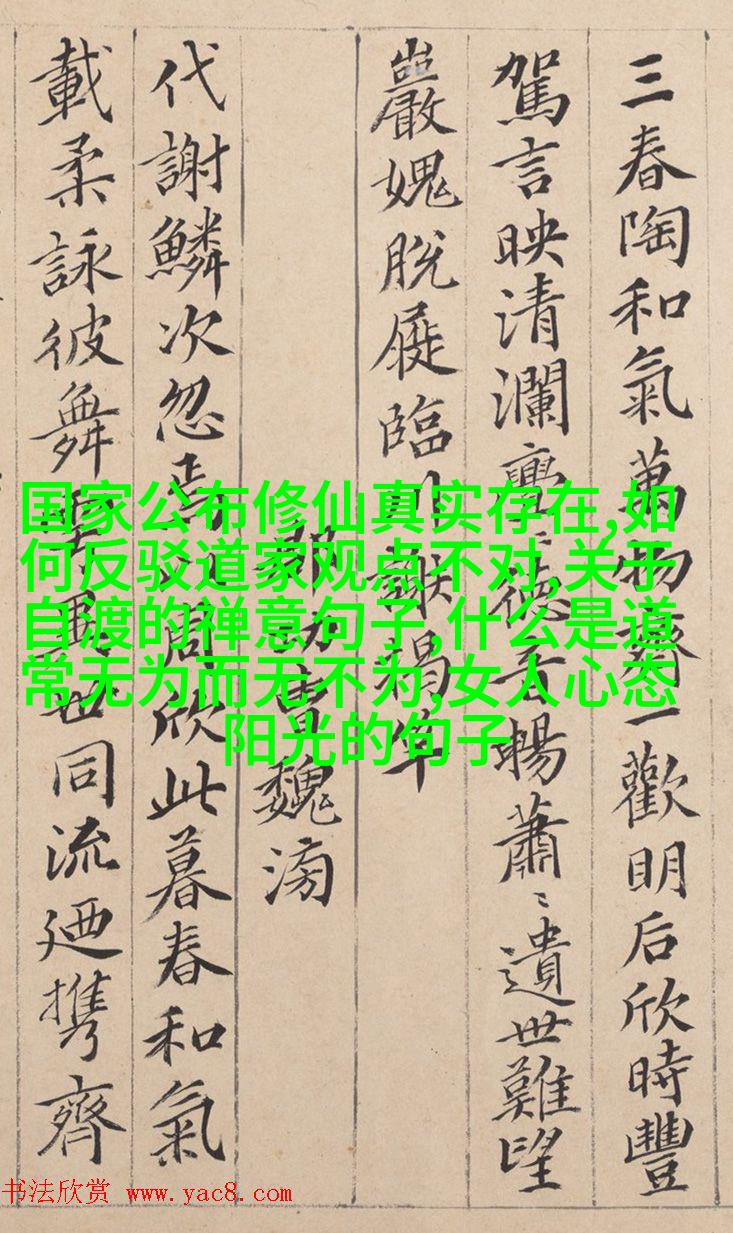 三春陶和氣萬物齊一歡明后欣時豐
駕言映清瀾亹〻德音暢蕭〻遺世難望
巖愧脫屣臨川謝揭竿
郡功曹魏滂
代謝鱗次忽焉以周欣此暮春和氣
載柔詠彼舞雩異世同流廼携齊
国家公布修仙真实存在,如
何反驳道家观点不对,关于
自渡的禅意句子,什么是道
常无为而无不为,女人心态
阳光的句子
书法欣赏 www.yac8.com